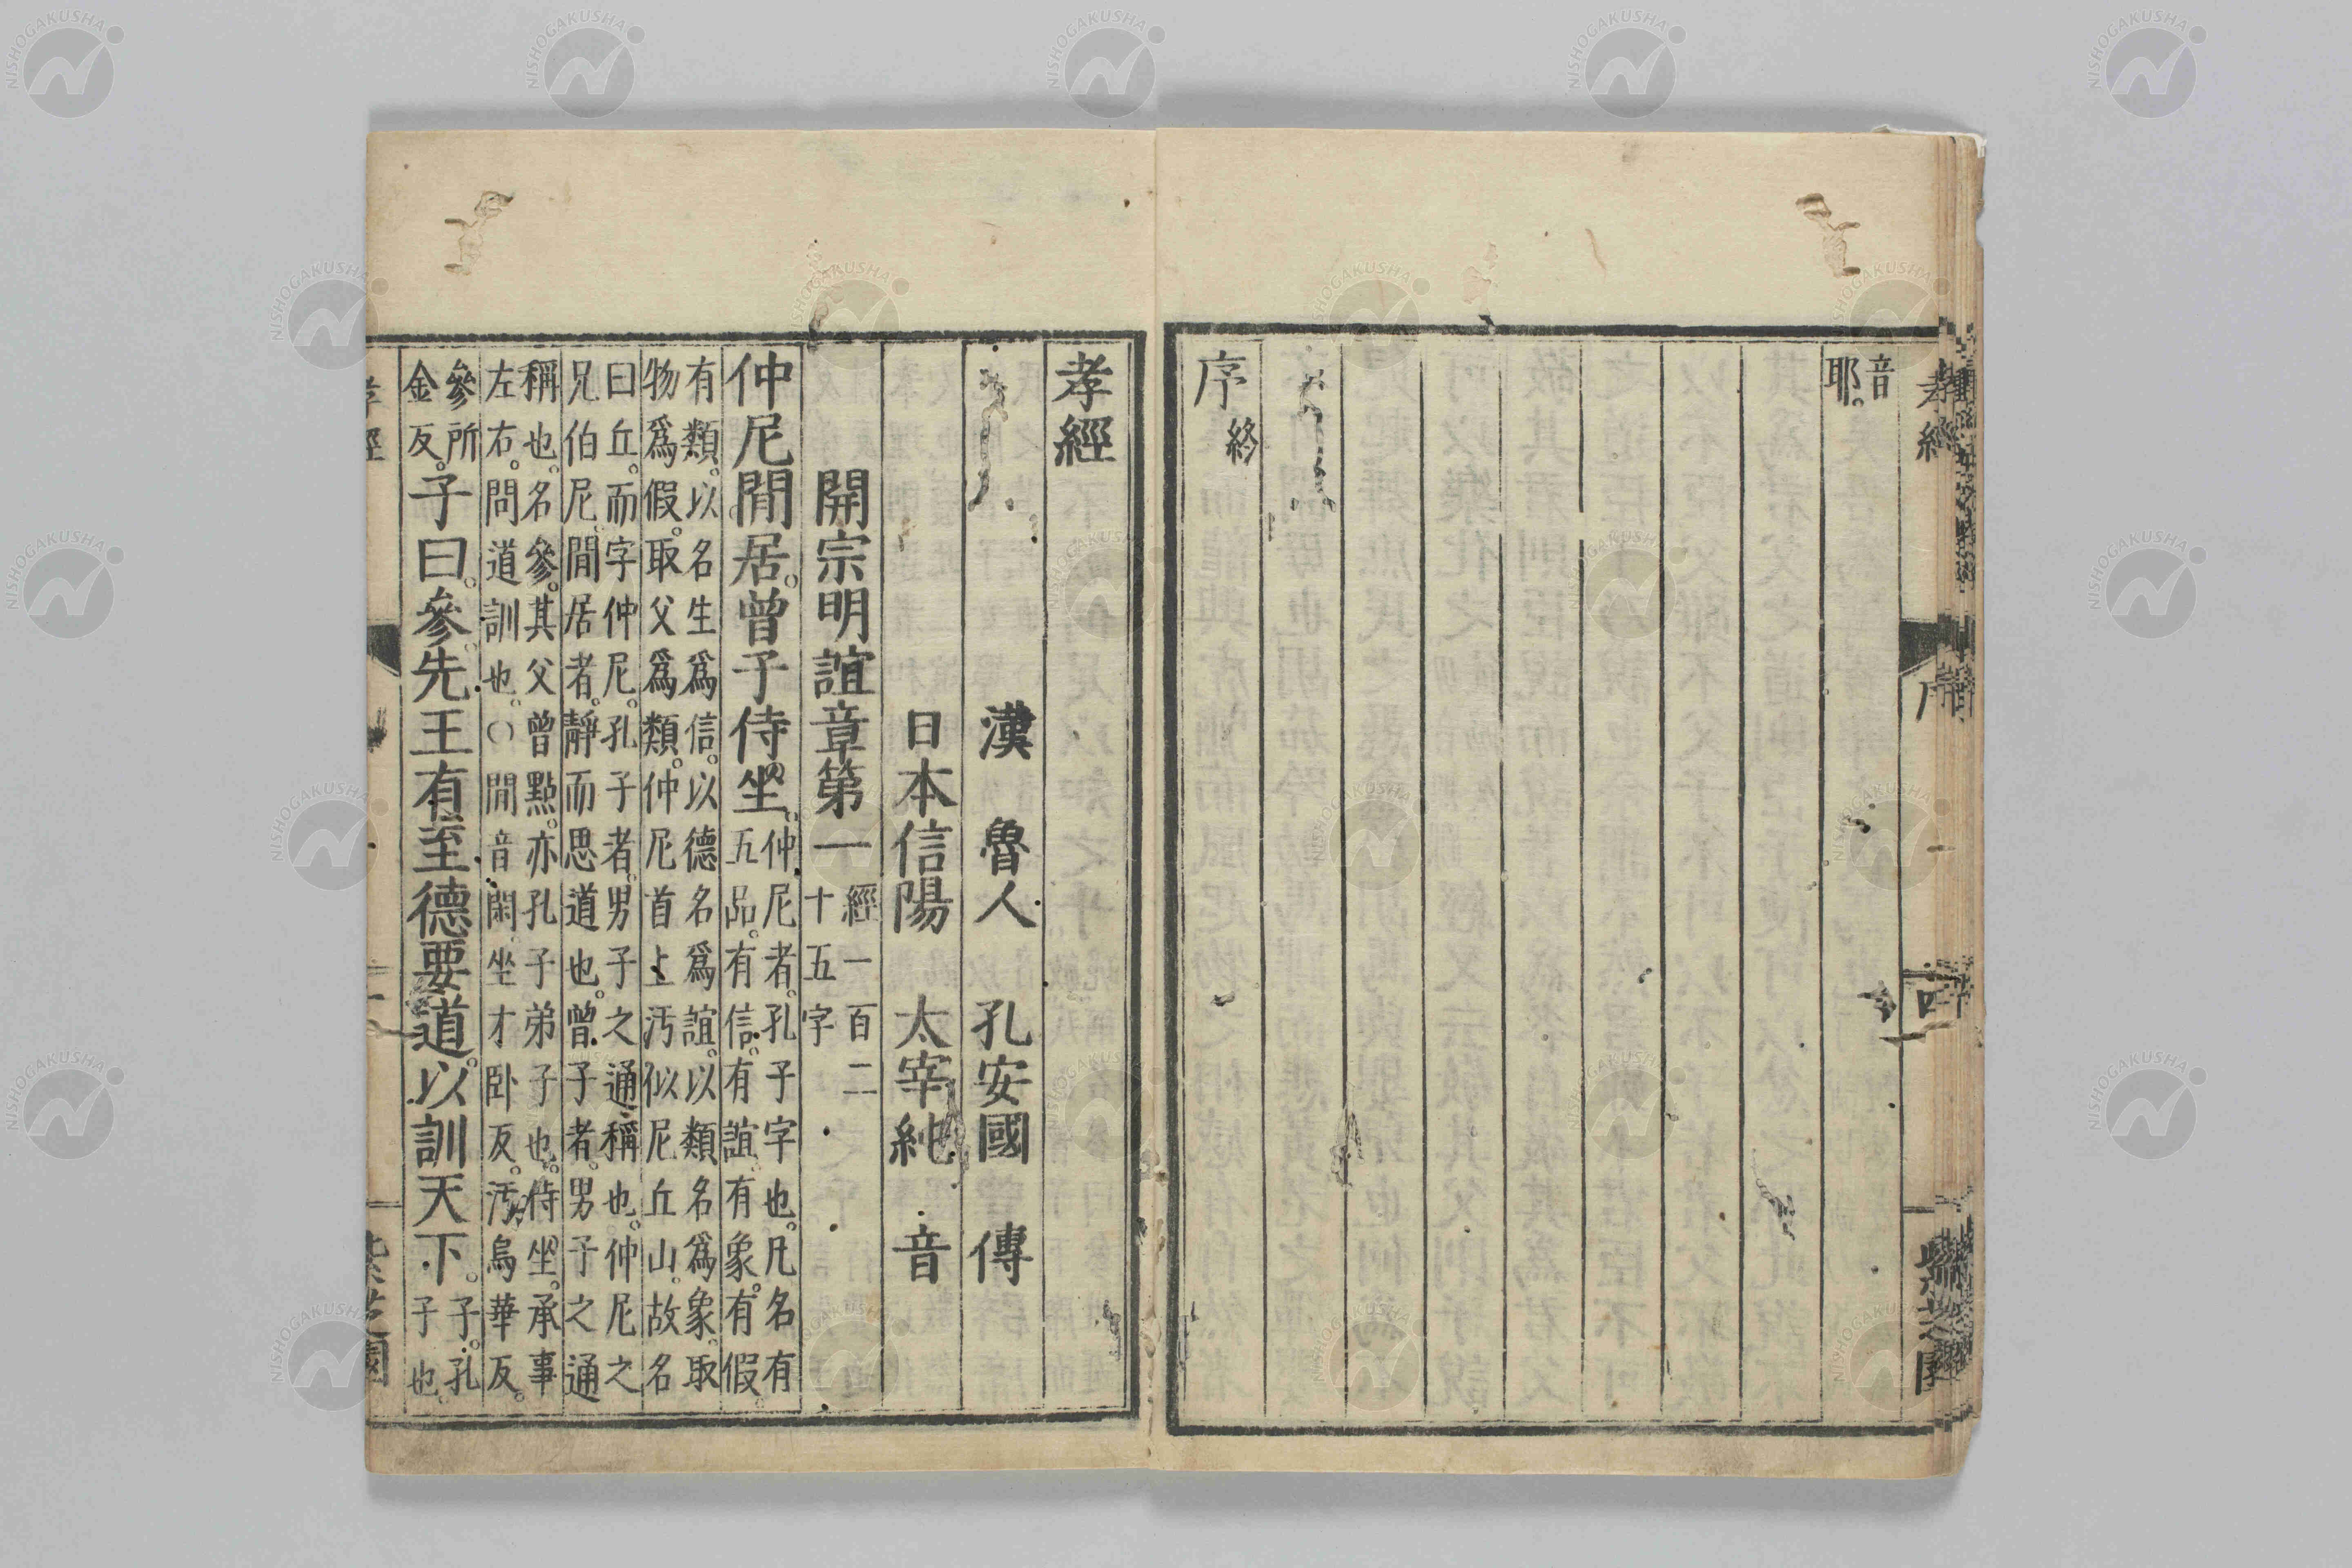 音
耶。
序終
孝經
漢　魯人　孔安國　傳
日本信陽　太宰純　音
開宗明誼章第一
經一百二
十五字
仲尼閒居。曾子侍坐。
仲尼者。孔子字也。凡名有
五品。有信。有誼。有象。有假。
有類。以名生爲信。以德名爲誼。以類名爲象。取
物爲假。取父爲類。仲尼首上汚似尼丘山。故名
曰丘。而字仲尼。孔子者。男子之通稱也。仲尼之
兄伯尼。閒居者。靜而思道也。曾子者。男子之通
稱也。名參。其父曾點。亦孔子弟子也。侍坐。承事
左右。問道訓也。○閒音閑。坐才臥反。汚烏華反。
參所
金反。
子曰。參。先王有至德要道。以訓天下。
子。孔
子也。
孝經
序
四
紫芝園
NISHOGAKUSHA